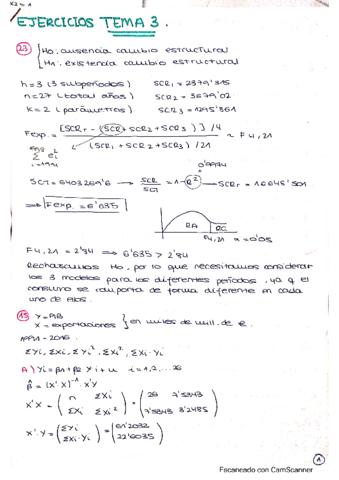 EJERCICIOS TEMA 3.
23) { H0: ausencia cambio estructural
H1: existencia cambio estructural
h=3 (3 subperíodos) SCR1 = 2379'815
n=27 (total años) SCR2 = 3679'02
k=2 (parámetros) SCR3 = 1295'861
Fexp. = [SCRr - (SCR1 + SCR2 + SCR3)] /4 ~ F4,21
(SCR1 + SCR2 + SCR3) /21
SCT = 6403269'6 → SCR/SCT = 1-R² → SCRr = 16648'501
0'9974
⇒ Fexp = 6'635
RA RC
F4,21 α=0'05
F4,21 = 2'84 ⇒ 6'635 > 2'84
Rechazamos H0, por lo que necesitamos considerar
los 3 modelos para los diferentes períodos, ya q el
consumo se comporta de forma diferente en cada
uno de ellos.
15) Y = PIB
X = exportaciones } en miles de mill. de €.
1991 - 2016
ΣYi, ΣXi, ΣYi², ΣXi², ΣXi·Yi
A) Yi = β1 + β2 Xi + u i = 1,2,...26
β̂ = (X'X)⁻¹ · X'Y
X'X = ( n ΣXi ) = ( 26 7'5343 )
ΣXi ΣXi² 7'5343 3'2485
X'·Y = ( ΣYi ) = ( 61'2032 )
ΣXi·Yi 22'6035
1
Escaneado con CamScanner